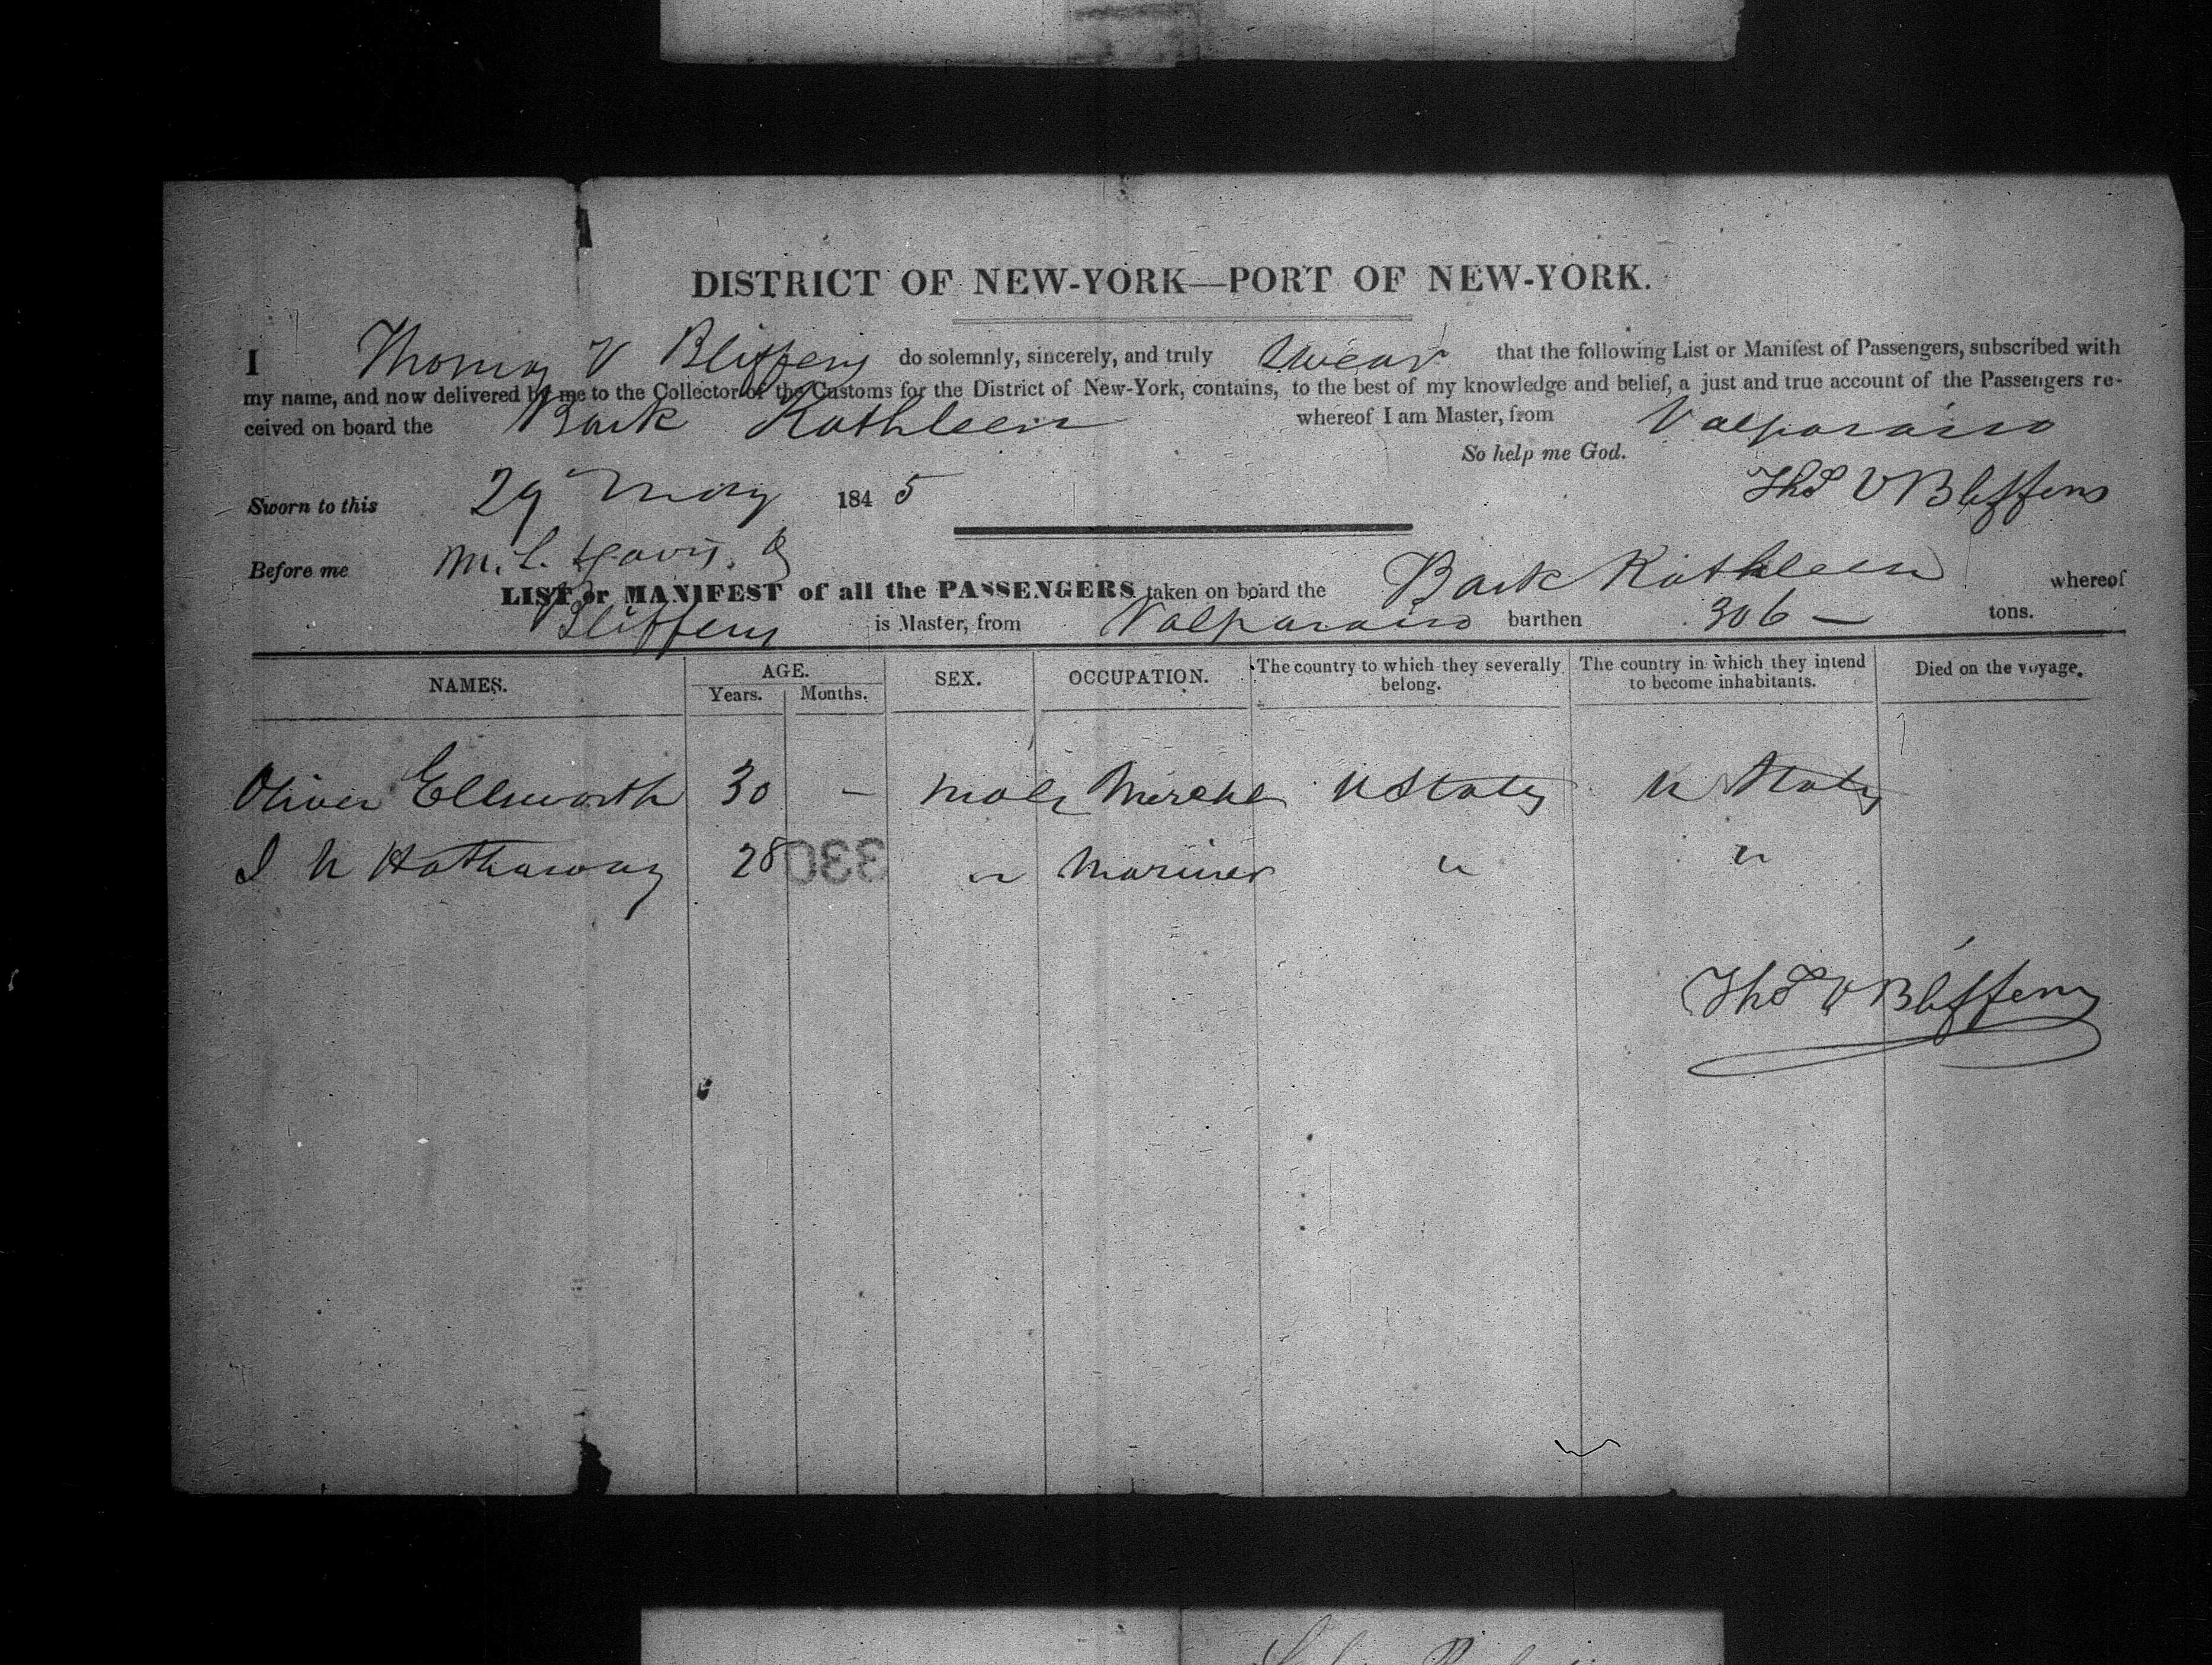 DISTRICT OF NEW-YORK—PORT OF NEW-YORK.
I Thomas V Bliffens do solemnly, sincerely, and truly swear that the following List or Manifest of Passengers, subscribed with
my name, and now delivered by me to the Collector of the Customs for the District of New-York, contains, to the best of my knowledge and belief, a just and true account of the Passengers re-
ceived on board the Bark Kathleen whereof I am Master, from Valparaiso
So help me God.
Sworn to this 29 May 1845 Thos V Bliffens
Before me M. L. Davis.
LIST or MANIFEST of all the PASSENGERS taken on board the Bark Kathleen whereof
Bliffens is Master, from Valparaiso burthen 306 — tons.
NAMES. AGE. Years. Months. SEX. OCCUPATION. The country to which they severally belong. The country in which they intend to become inhabitants. Died on the voyage.
Oliver Ellsworth 30 — male Mercht U States U States
I N Hathaway 28 " Mariner " "
330
Thos V Bliffens